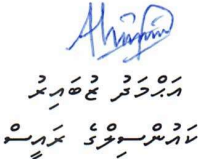 އަޙްމަދު ޒުބައިރު
ކައުންސިލްގެ ރައީސް